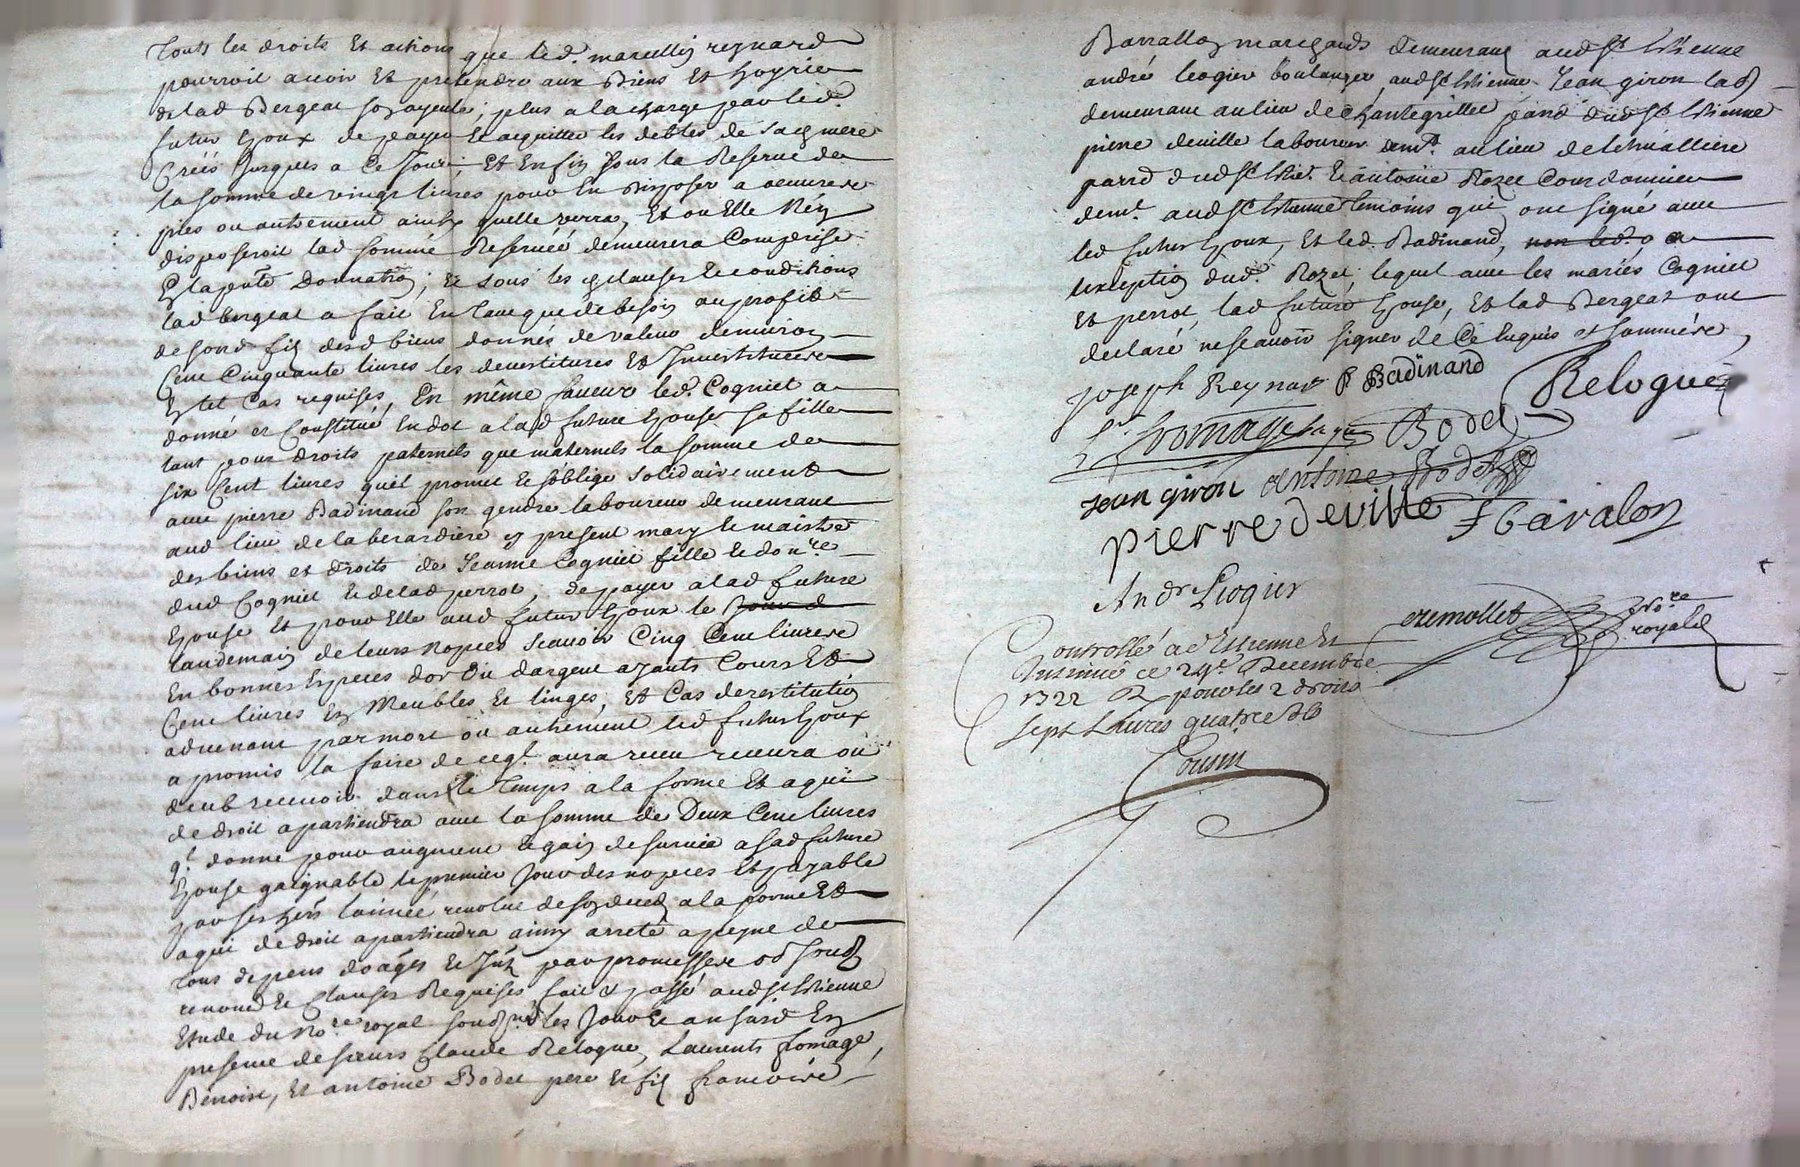 touts les droits et actions que led. marcellin reynard
pourroit avoir et pretendre aux biens et hoyrie
de lad bergeat son ayeule; plus a la charge par led.
futur epoux de payer et acquitter les debtes de sa mere
créés jusques a ce jour, et enfin sous la reserve de
la somme de vingt livres pour en disposer a oeuvres
pies ou autrement ainsy quelle verra, et ou elle n'en
disposeroit lad somme reservée demeurera comprise
en la pnte donnation; et sous les clauses et conditions
lad bergeat a fait en tant que de besoin au profit
de sond fils desd biens donnés de valeur denviron
cent cinquante livres les devestitures et investitures
en tel cas requises, En même faveur led. Cogniet a
donné et constitué en dot a lad future epouse sa fille
tant pour droits paternels que maternels la somme de
six cent livres quil promet et soblige solidairement
avec pierre Badinand son gendre laboureur demeurant
aud lieu de la berardiere y present mary et maistre
des biens et droits de Jeanne Cogniet fille et donre
dud Cogniet et de lad perrot, de payer a lad future
epouse et pour elle aud futur epoux le jour d
landemain de leurs nopces scavoir cinq cent livres
en bonnes especes dor ou dargent ayants cours et
cent livres en meubles et linges, et cas de restitution
advenant par mort ou autrement led futur epoux
a promis la faire de ce ql aura receu recevra ou
deub recevoir dans le temps a la forme et a qui
de droit apartiendra avec la somme de deux cent livres
ql donne pour augment et gain de survie a sad future
epouse gaignable le premier jour des nopces et payable
par ses hers lannée revolue de son deced a la forme et
a qui de droit apartiendra ainsy arreté a peyne de
tous depens dages et inst par promesses ob soud
renond et clauses requises fait et passé aud st Etienne
etude du nore royal soud les jour et an susd En
presence de sieurs Claude Relogue, Laurents fromage,
Benoist, et antoine Bodet pere et fils francois
Barrallon marchands demeurants aud st Etienne
andré leogier boulanger aud st Etienne Jean giron lab
demeurant au lieu de Chantegrillet pard dud st Etienne
pierre deville laboureur demt. au lieu de
parrd dud st Etiet. et antoine Rozet Cordonnier
demt. aud st Etienne temoins qui ont signé avec
led futur epoux, et led. Badinand, non led. a
lexeption dud. Rozet lequel avec les mariés Cogniet
et perrot, lad future epouse, et lad Bergeat ont
declaré ne scavoir signer de ce enquis et sommés
joseph Reynar P Badinand Relogue
fromage Bodet
jean giron antoine Bodet
pierre deville f Baralon
Andr Liogier
Controllé a st Etienne et
insinué ce 24e Decembre
1722 R pour les 2 droits
sept Livres quatre sols
Cousin
remollet nore
royald